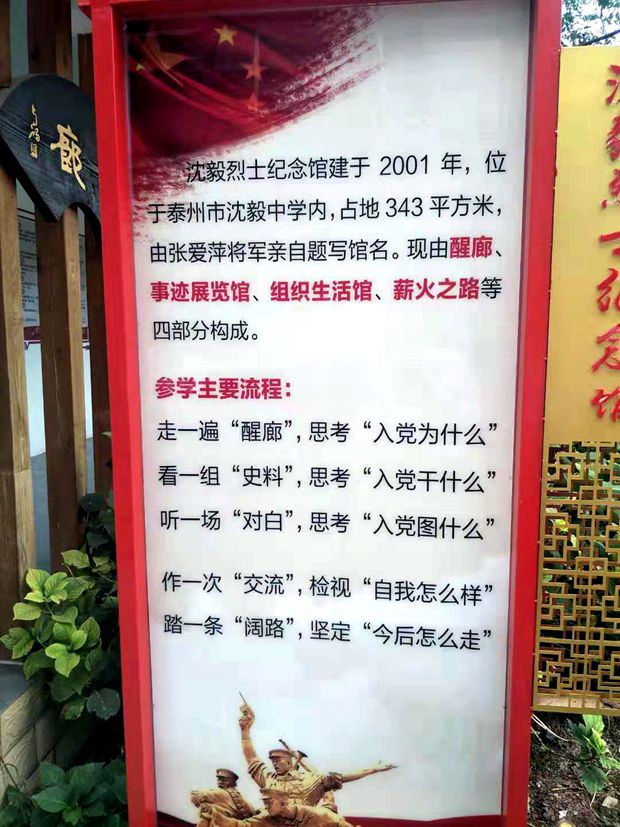 沈毅烈士纪念馆建于 2001 年，位
于泰州市沈毅中学内，占地 343 平方米，
由张爱萍将军亲自题写馆名。现由醒廊、
事迹展览馆、组织生活馆、薪火之路等
四部分构成。
参学主要流程：
走一遍“醒廊”，思考“入党为什么”
看一组“史料”，思考“入党干什么”
听一场“对白”，思考“入党图什么”
作一次“交流”，检视“自我怎么样”
踏一条“阔路”，坚定“今后怎么走”
廊
沈毅烈士纪念馆